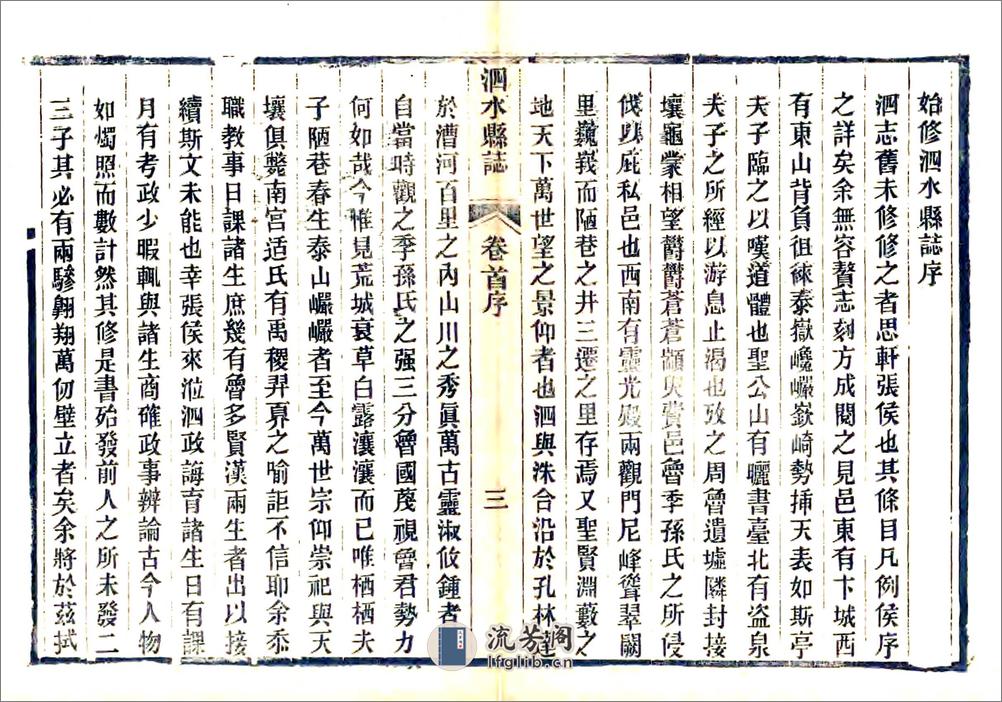 始修泗水縣誌序
泗志舊未修修之者思軒張侯也其條目凡例侯序
之詳矣余無容贅志刻方成閱之見邑東有卞城西
有東山背負徂徠泰嶽巉巖嶔崎勢揷天表如斯亭
夫子臨之以嘆道體也聖公山有曬書臺北有盗泉
夫子之所經以游息止渴也攷之周魯遺墟隣封接
壤龜蒙相望欝欝蒼蒼顓臾費邑魯季孫氏之所侵
伐以庇私邑也西南有靈光殿兩觀門尼峰聳翠闕
里巍峩而陋巷之井三遷之里存焉又聖賢淵藪之
地天下萬世望之景仰者也泗與洙合沿於孔林達
泗水縣誌
卷首序
三
於漕河百里之內山川之秀眞萬古靈淑攸鍾者
自當時觀之季孫氏之强三分魯國蔑視魯君勢力
何如哉今惟見荒城衰草白露瀼瀼而已唯栖栖夫
子陋巷春生泰山巖巖者至今萬世宗仰崇祀與天
壤俱斃南宫适氏有禹稷羿奡之喻詎不信耶余忝
職教事日課諸生庶幾有魯多賢漢兩生者出以接
續斯文未能也幸張侯來涖泗政誨育諸生日有課
月有考政少暇輒與諸生商確政事辨論古今人物
如燭照而數計然其修是書殆發前人之所未發二
三子其必有兩驂翺翔萬仞壁立者矣余將於茲拭
流芳阁
lfglib.cn